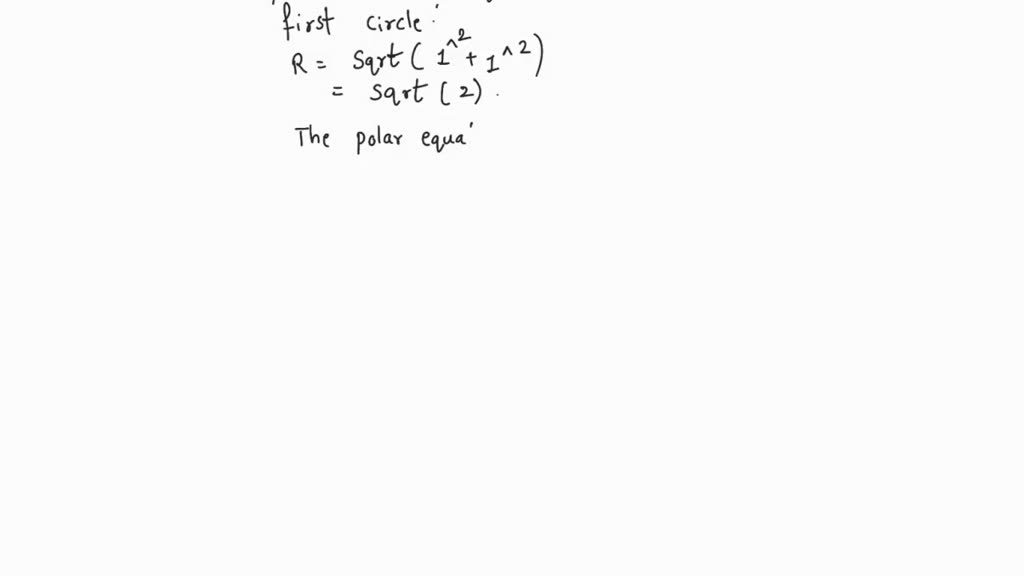 first circle:
R = sqrt ( 1^2 + 1^2 )
= sqrt ( 2 ) .
The polar equa'